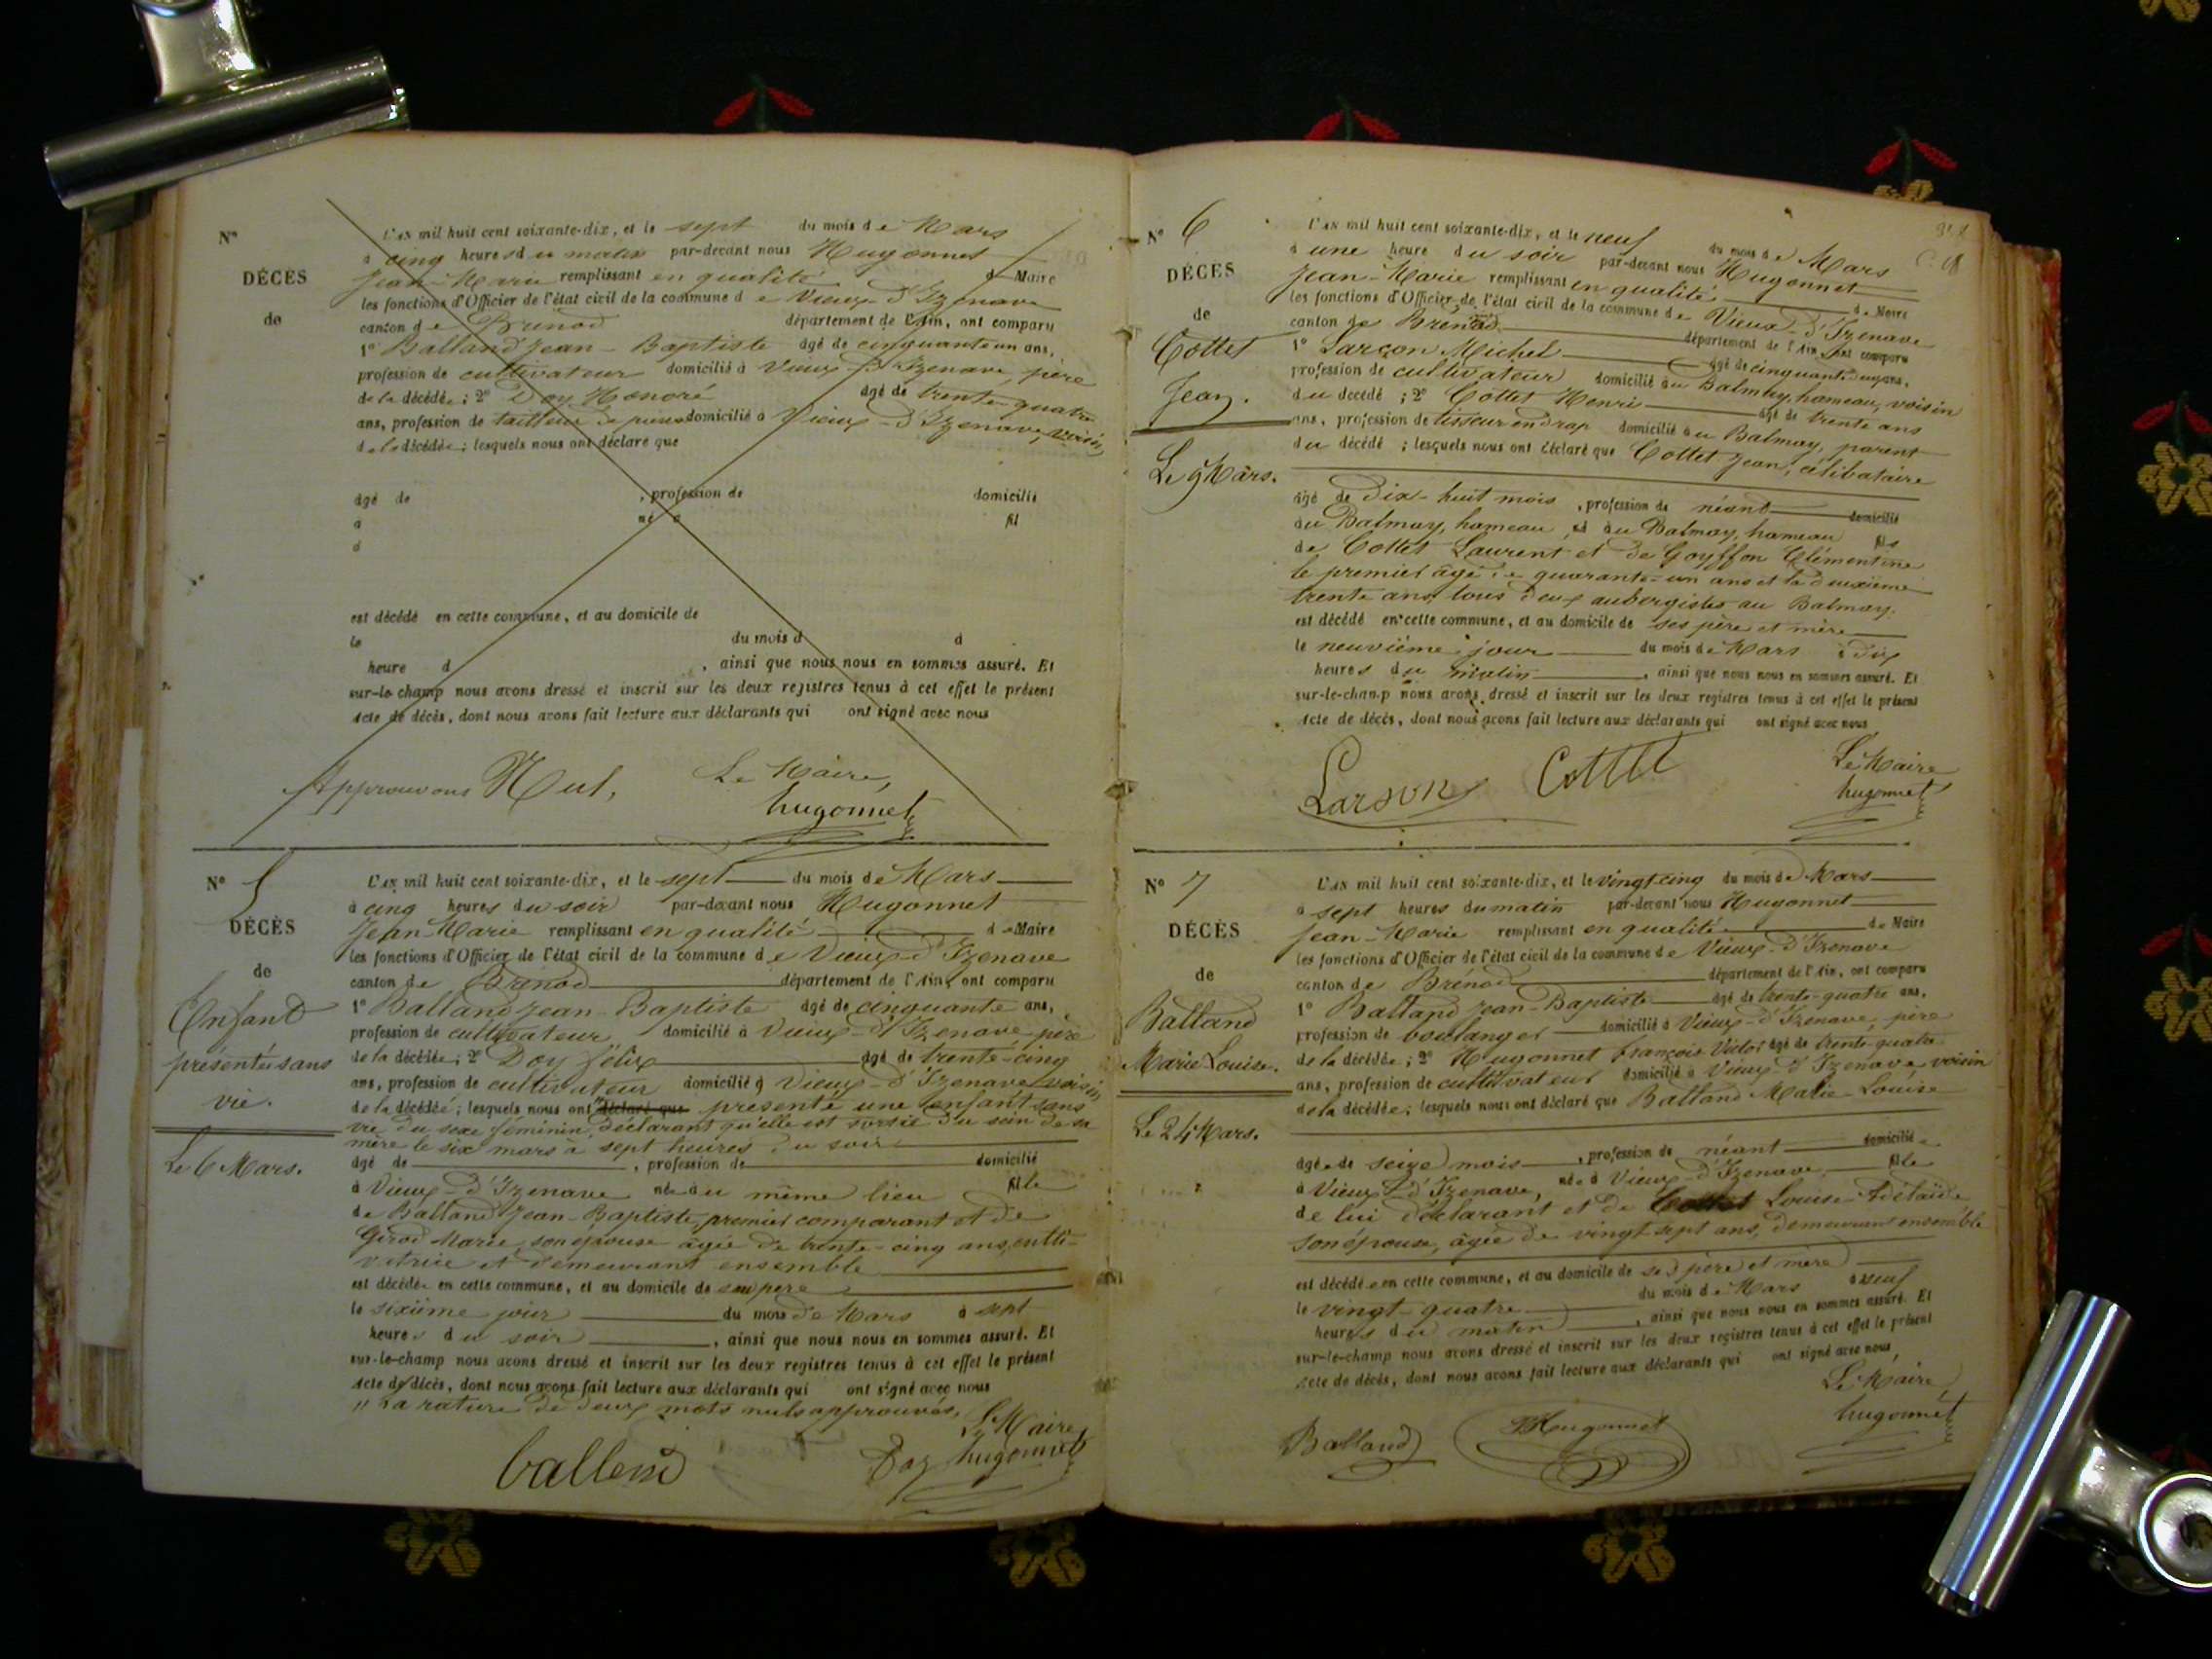 N°
DÉCÈS
de
L'AN mil huit cent soixante-dix, et le sept du mois de Mars
à cinq heures du matin par-devant nous Hugonnet
Jean-Marie remplissant en qualité de Maire
les fonctions d'Officier de l'état civil de la commune de Vieux-d'Izenave
canton de Brénod département de l'Ain, ont comparu
1° Balland Jean-Baptiste âgé de cinquante un ans,
profession de cultivateur domicilié à Vieux-d'Izenave, père
de la décédée; 2° Doy Honoré âgé de trente-quatre
ans, profession de tailleur de pierres domicilié à Vieux-d'Izenave, voisin
de la décédée; lesquels nous ont déclaré que
âgé de , profession de domicilié
à né à fil
d
est décédé en cette commune, et au domicile de
le du mois d à
heure d , ainsi que nous nous en sommes assuré. Et
sur-le-champ nous avons dressé et inscrit sur les deux registres tenus à cet effet le présent
acte de décès, dont nous avons fait lecture aux déclarants qui ont signé avec nous
Approuvons Nul, Le Maire,
hugonnet
N° 5
DÉCÈS
de
Enfant
présenté sans
vie.
Le 6 Mars.
L'AN mil huit cent soixante-dix, et le sept du mois de Mars
à cinq heures du soir par-devant nous Hugonnet
Jean-Marie remplissant en qualité de Maire
les fonctions d'Officier de l'état civil de la commune de Vieux-d'Izenave
canton de Brénod département de l'Ain, ont comparu
1° Balland Jean-Baptiste âgé de cinquante ans,
profession de cultivateur domicilié à Vieux-d'Izenave père
de la décédée; 2° Doy Félix âgé de trente-cinq
ans, profession de cultivateur domicilié à Vieux-d'Izenave voisin
de la décédée; lesquels nous ont déclaré que présenté une enfant sans
vie du sexe féminin, déclarant qu'elle est sortie du sein de sa
mère le six mars à sept heures du soir
âgé de , profession de domicilié
à Vieux-d'Izenave née au même lieu fille
de Balland Jean-Baptiste, premier comparant et de
Girod Marie son épouse âgée de trente-cinq ans, culti-
vatrice et demeurant ensemble
est décédée en cette commune, et au domicile de son père
le sixième jour du mois de Mars à sept
heures du soir , ainsi que nous nous en sommes assuré. Et
sur-le-champ nous avons dressé et inscrit sur les deux registres tenus à cet effet le présent
acte de décès, dont nous avons fait lecture aux déclarants qui ont signé avec nous
" La rature de deux mots nuls approuvés. Le Maire
balland Doy hugonnet
N° 6
DÉCÈS
de
Cottet
Jean.
Le 9 Mars.
L'AN mil huit cent soixante-dix, et le neuf du mois de Mars
à une heure du soir par-devant nous Hugonnet
Jean-Marie remplissant en qualité de Maire
les fonctions d'Officier de l'état civil de la commune de Vieux-d'Izenave
canton de Brénod département de l'Ain, ont comparu
1° Larçon Michel âgé de cinquante-un ans,
profession de cultivateur domicilié au Balmay, hameau, voisin
du décédé; 2° Cottet Henri âgé de trente ans
ans, profession de tisseur en drap domicilié au Balmay, parent
du décédé; lesquels nous ont déclaré que Cottet Jean, célibataire
âgé de dix-huit mois, profession de néant domicilié
au Balmay, hameau, né au Balmay, hameau fils
de Cottet Laurent et de Goyffon Clémentine
le premier âgé de quarante-un ans et la deuxième
trente ans, tous deux aubergistes au Balmay.
est décédé en cette commune, et au domicile de ses père et mère
le neuvième jour du mois de Mars à dix
heures du matin , ainsi que nous nous en sommes assuré. Et
sur-le-champ nous avons dressé et inscrit sur les deux registres tenus à cet effet le présent
acte de décès, dont nous avons fait lecture aux déclarants qui ont signé avec nous
Larson Cottet Le Maire
hugonnet
N° 7
DÉCÈS
de
Balland
Marie-Louise.
Le 24 Mars.
L'AN mil huit cent soixante-dix, et le vingt cinq du mois de Mars
à sept heures du matin par-devant nous Hugonnet
Jean-Marie remplissant en qualité de Maire
les fonctions d'Officier de l'état civil de la commune de Vieux-d'Izenave
canton de Brénod département de l'Ain, ont comparu
1° Balland Jean-Baptiste âgé de trente-quatre ans,
profession de boulanger domicilié à Vieux-d'Izenave, père
de la décédée; 2° Hugonnet François Victor âgé de trente-quatre
ans, profession de cultivateur domicilié à Vieux-d'Izenave, voisin
de la décédée; lesquels nous ont déclaré que Balland Marie-Louise
âgée de seize mois, profession de néant domiciliée
à Vieux-d'Izenave, née à Vieux-d'Izenave, fille
de lui déclarant et de Cottet Louise-Adélaïde
son épouse, âgée de vingt sept ans, demeurant ensemble
est décédée en cette commune, et au domicile de ses père et mère
le vingt-quatre du mois de Mars à neuf
heures du matin , ainsi que nous nous en sommes assuré. Et
sur-le-champ nous avons dressé et inscrit sur les deux registres tenus à cet effet le présent
acte de décès, dont nous avons fait lecture aux déclarants qui ont signé avec nous,
Le Maire,
Balland Hugonnet hugonnet